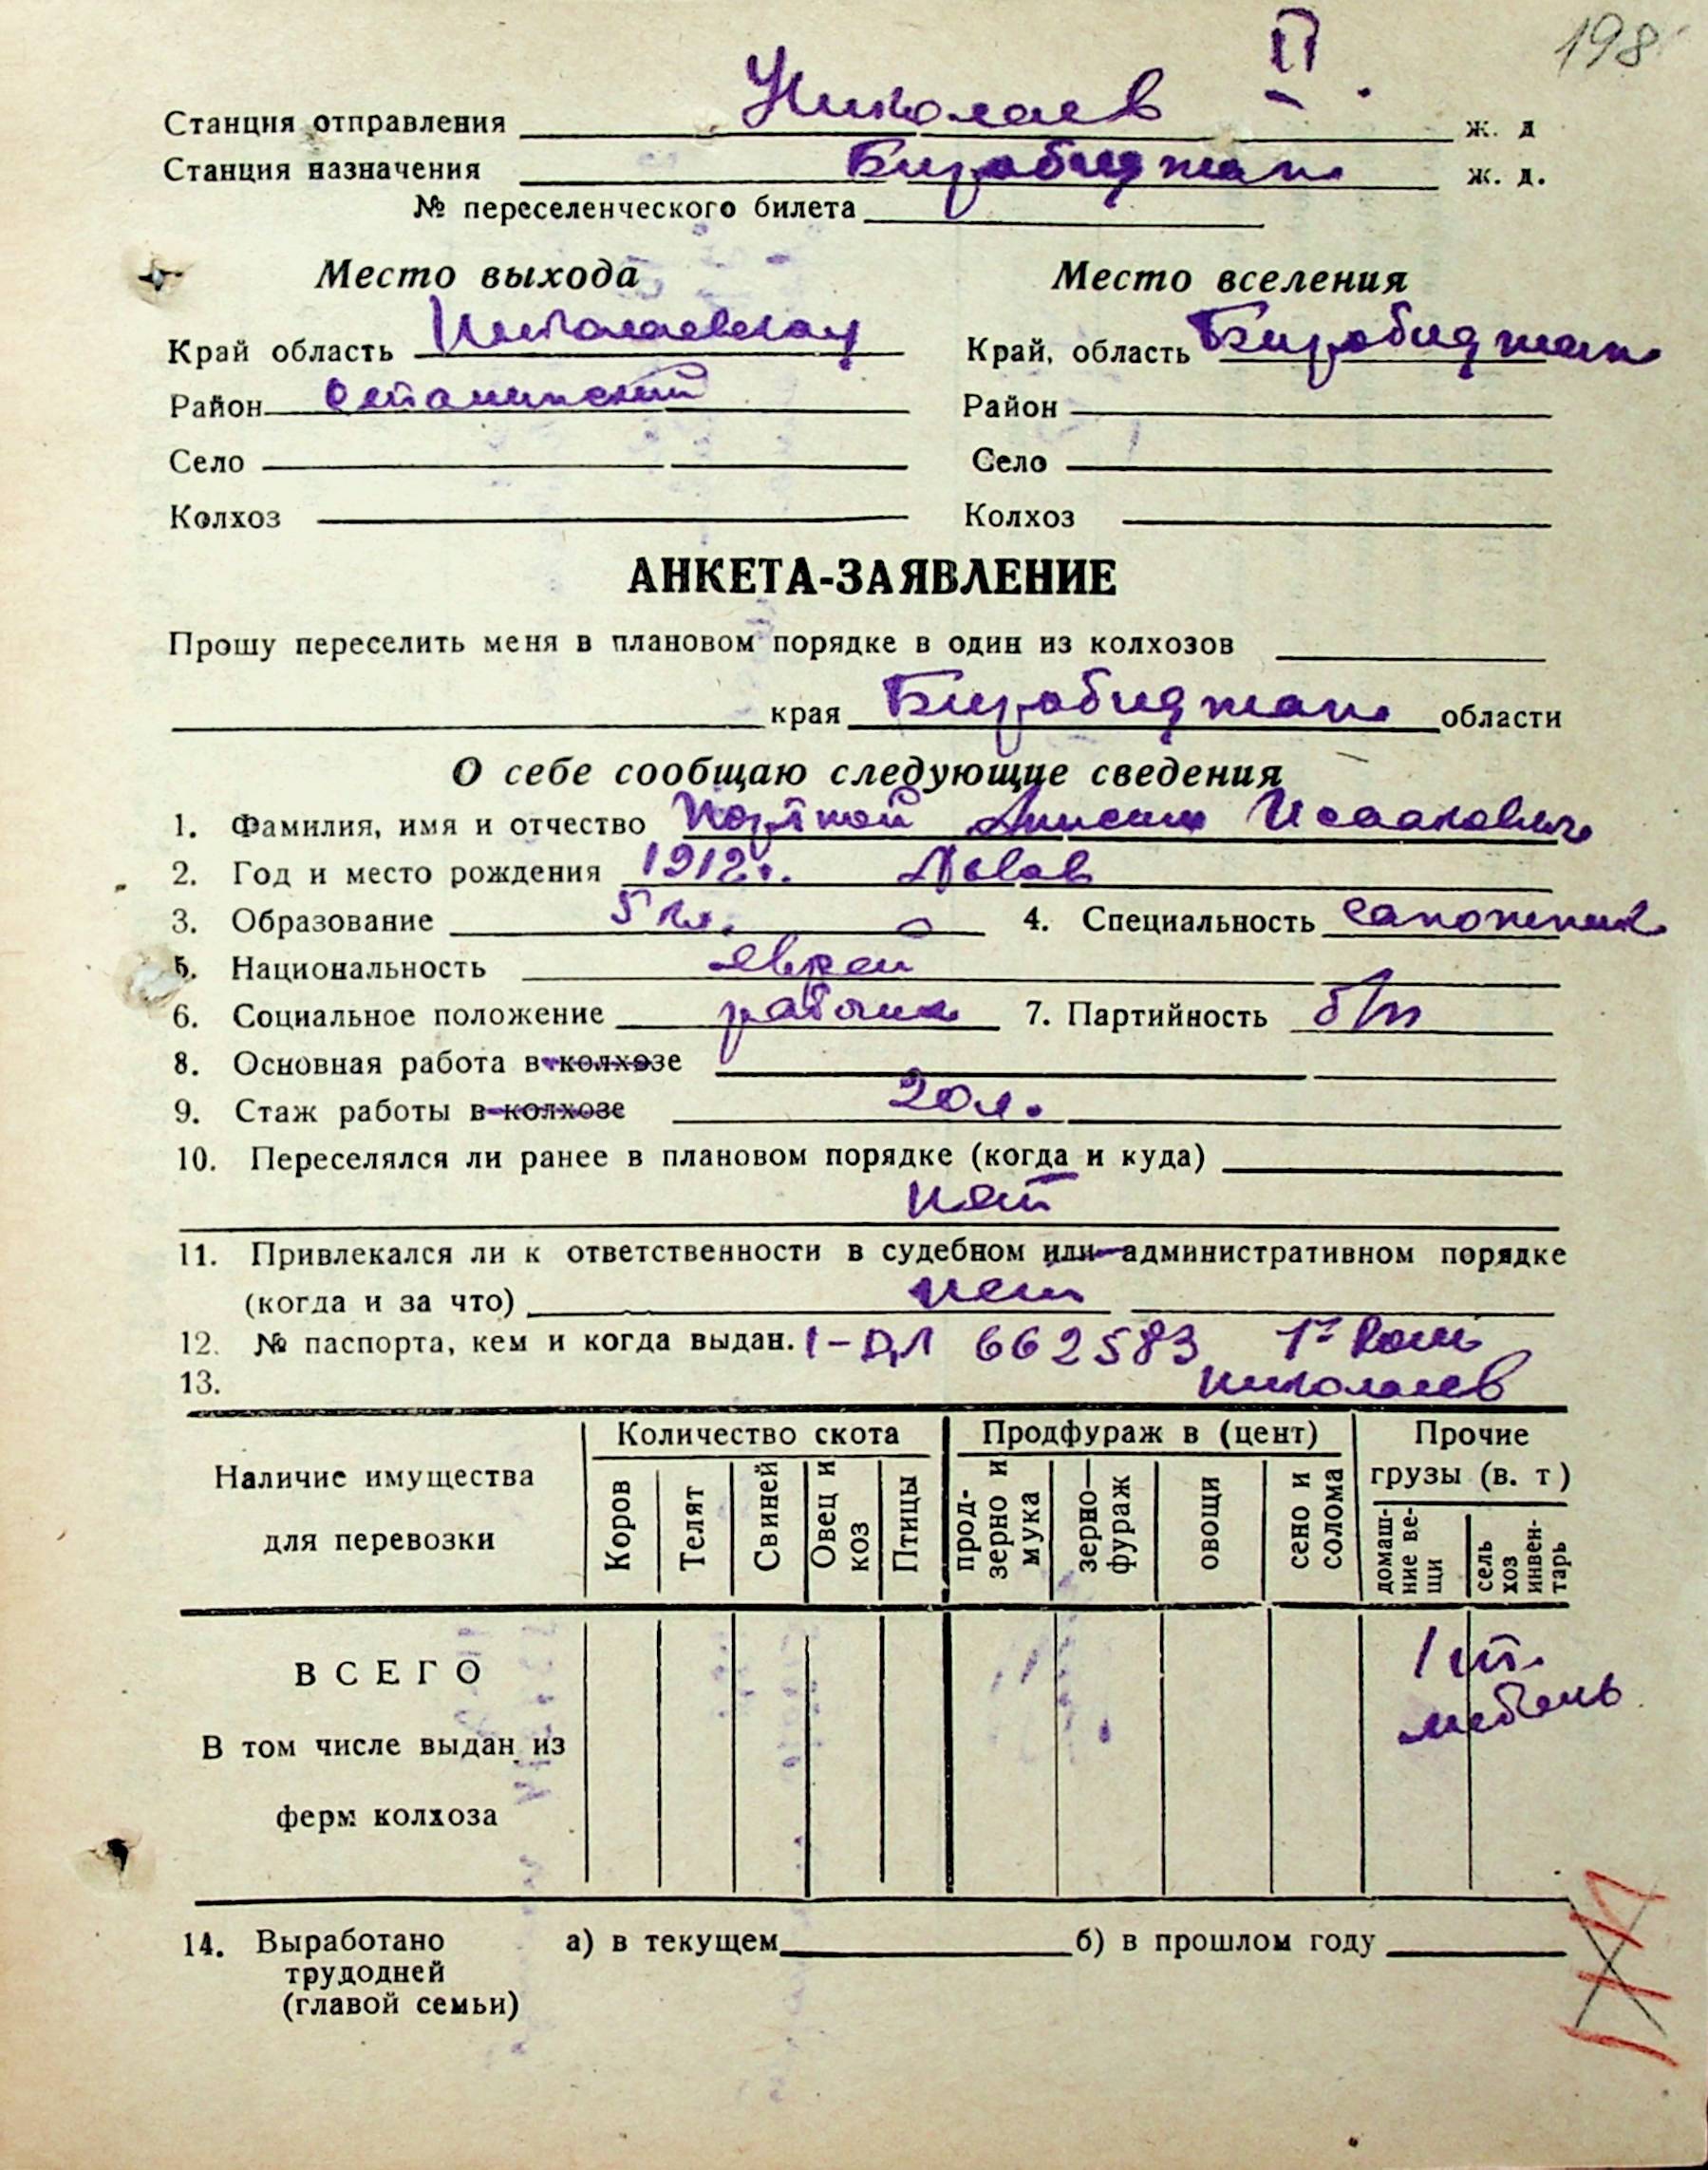 198
II
Станция отправления Николаев ж. д
Станция назначения Биробиджан ж. д.
№ переселенческого билета
Место выхода Место вселения
Край область Николаевская Край, область Биробиджан
Район Сталинский Район
Село Село
Колхоз Колхоз
АНКЕТА-ЗАЯВЛЕНИЕ
Прошу переселить меня в плановом порядке в один из колхозов
края Биробиджан области
О себе сообщаю следующие сведения
1. Фамилия, имя и отчество Портной Исаакович
2. Год и место рождения 1912г.
3. Образование 5 кл. 4. Специальность сапожник
5. Национальность еврей
6. Социальное положение рабочий 7. Партийность б/п
8. Основная работа в колхозе
9. Стаж работы в колхозе 20 л.
10. Переселялся ли ранее в плановом порядке (когда и куда)
нет
11. Привлекался ли к ответственности в судебном или административном порядке
(когда и за что) нет
12. № паспорта, кем и когда выдан. 662583
13. Николаев
Наличие имущества для перевозки
Количество скота
Продфураж в (цент)
Прочие грузы (в. т)
Коров
Телят
Свиней
Овец и коз
Птицы
прод-зерно и мука
зерно—фураж
овощи
сено и солома
домаш-ние ве-щи
сель хоз инвен-тарь
ВСЕГО 1 шт.
мебель
В том числе выдан из
ферм колхоза
14. Выработано а) в текущем б) в прошлом году
трудодней
(главой семьи)